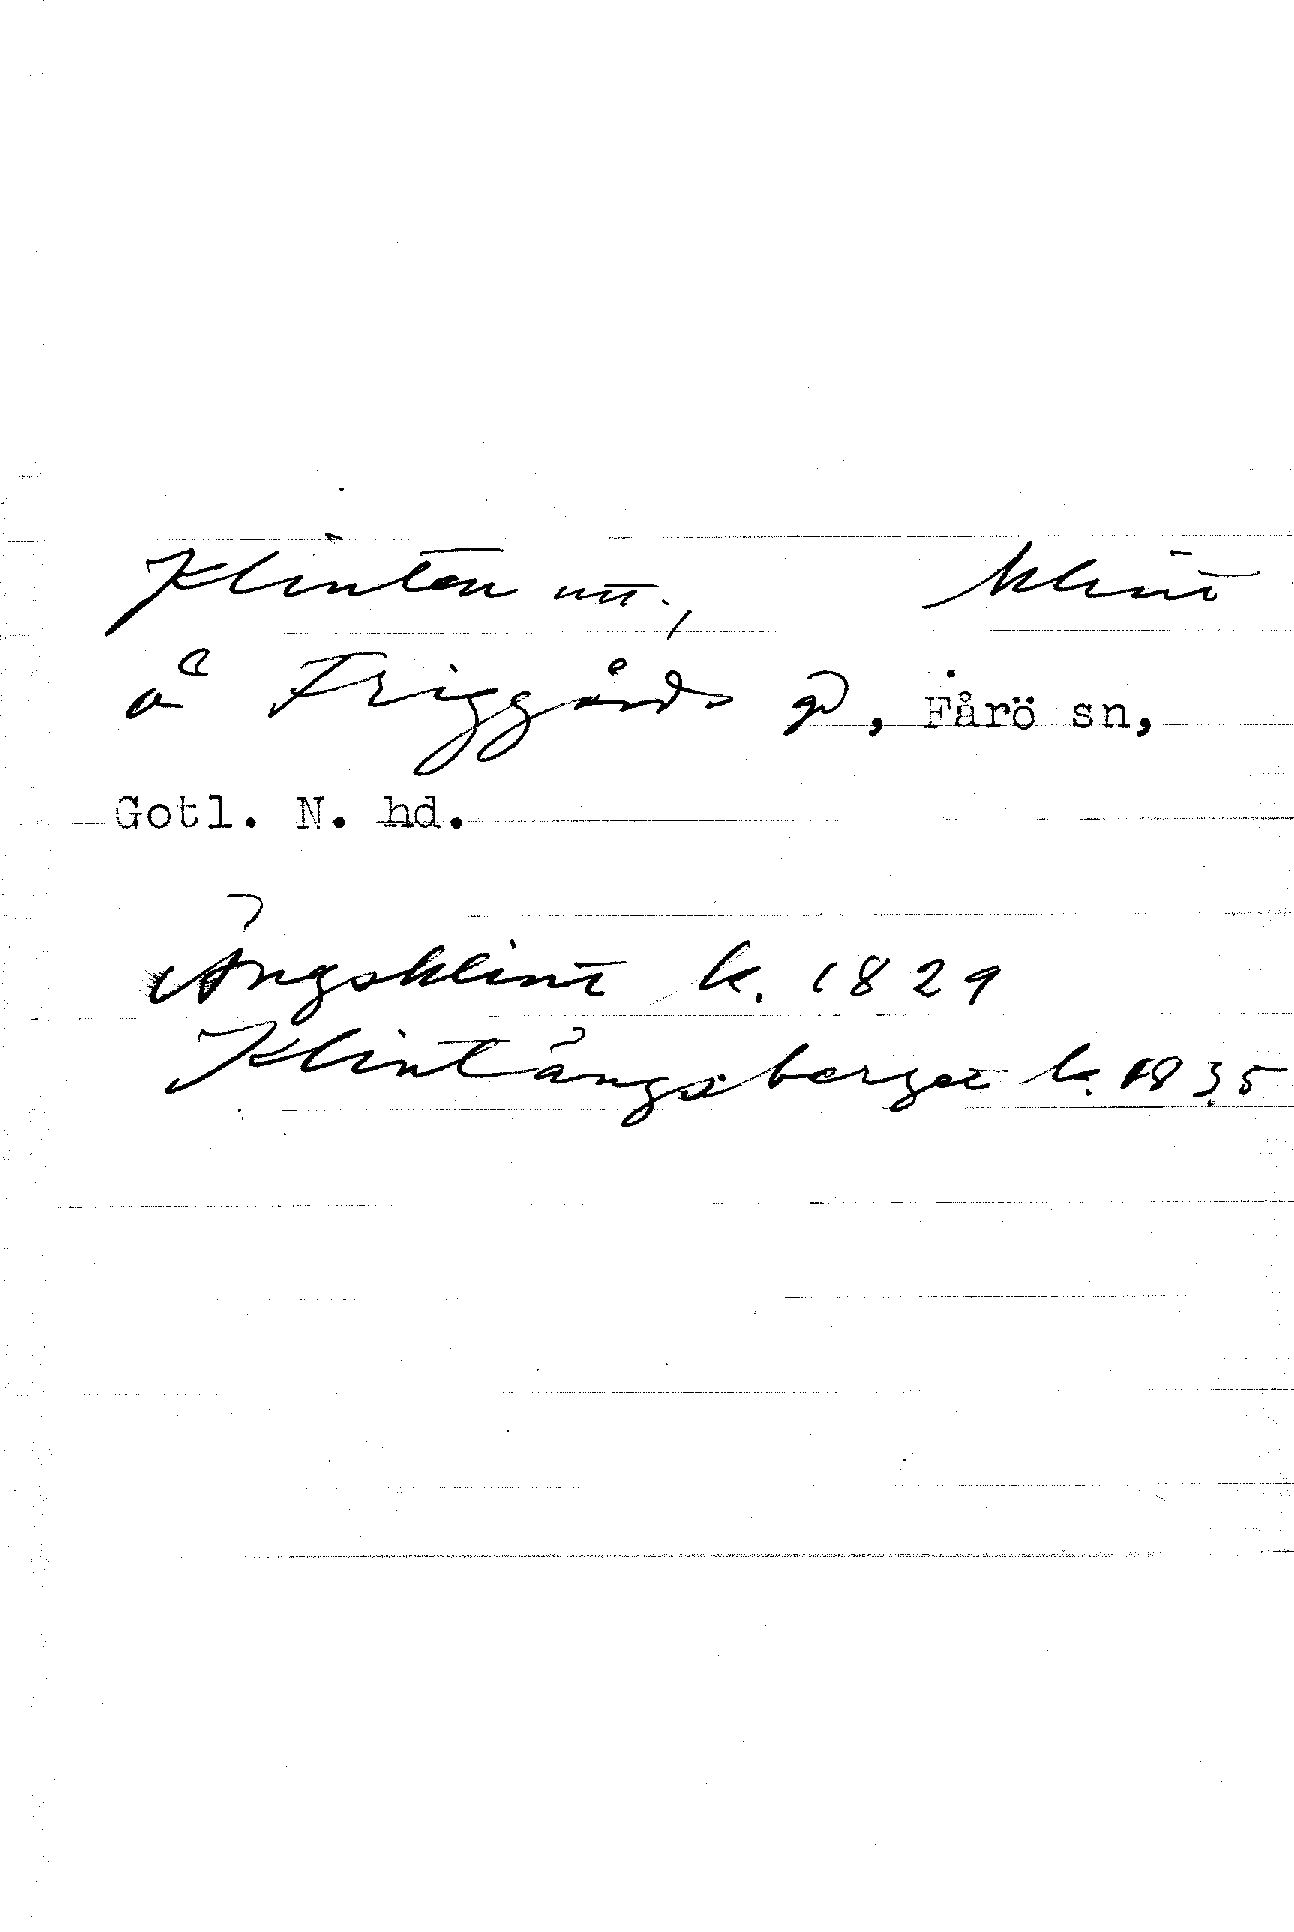 Klinten utt., klint
å Friggårds gd, Fårö sn,
Gotl. N. hd.
Ängsklint k. 1829
Klintängsberget k. 1835